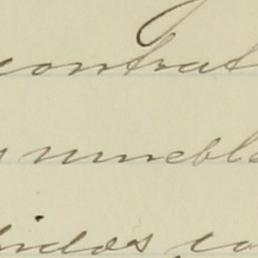 contrat
muebl
idos co